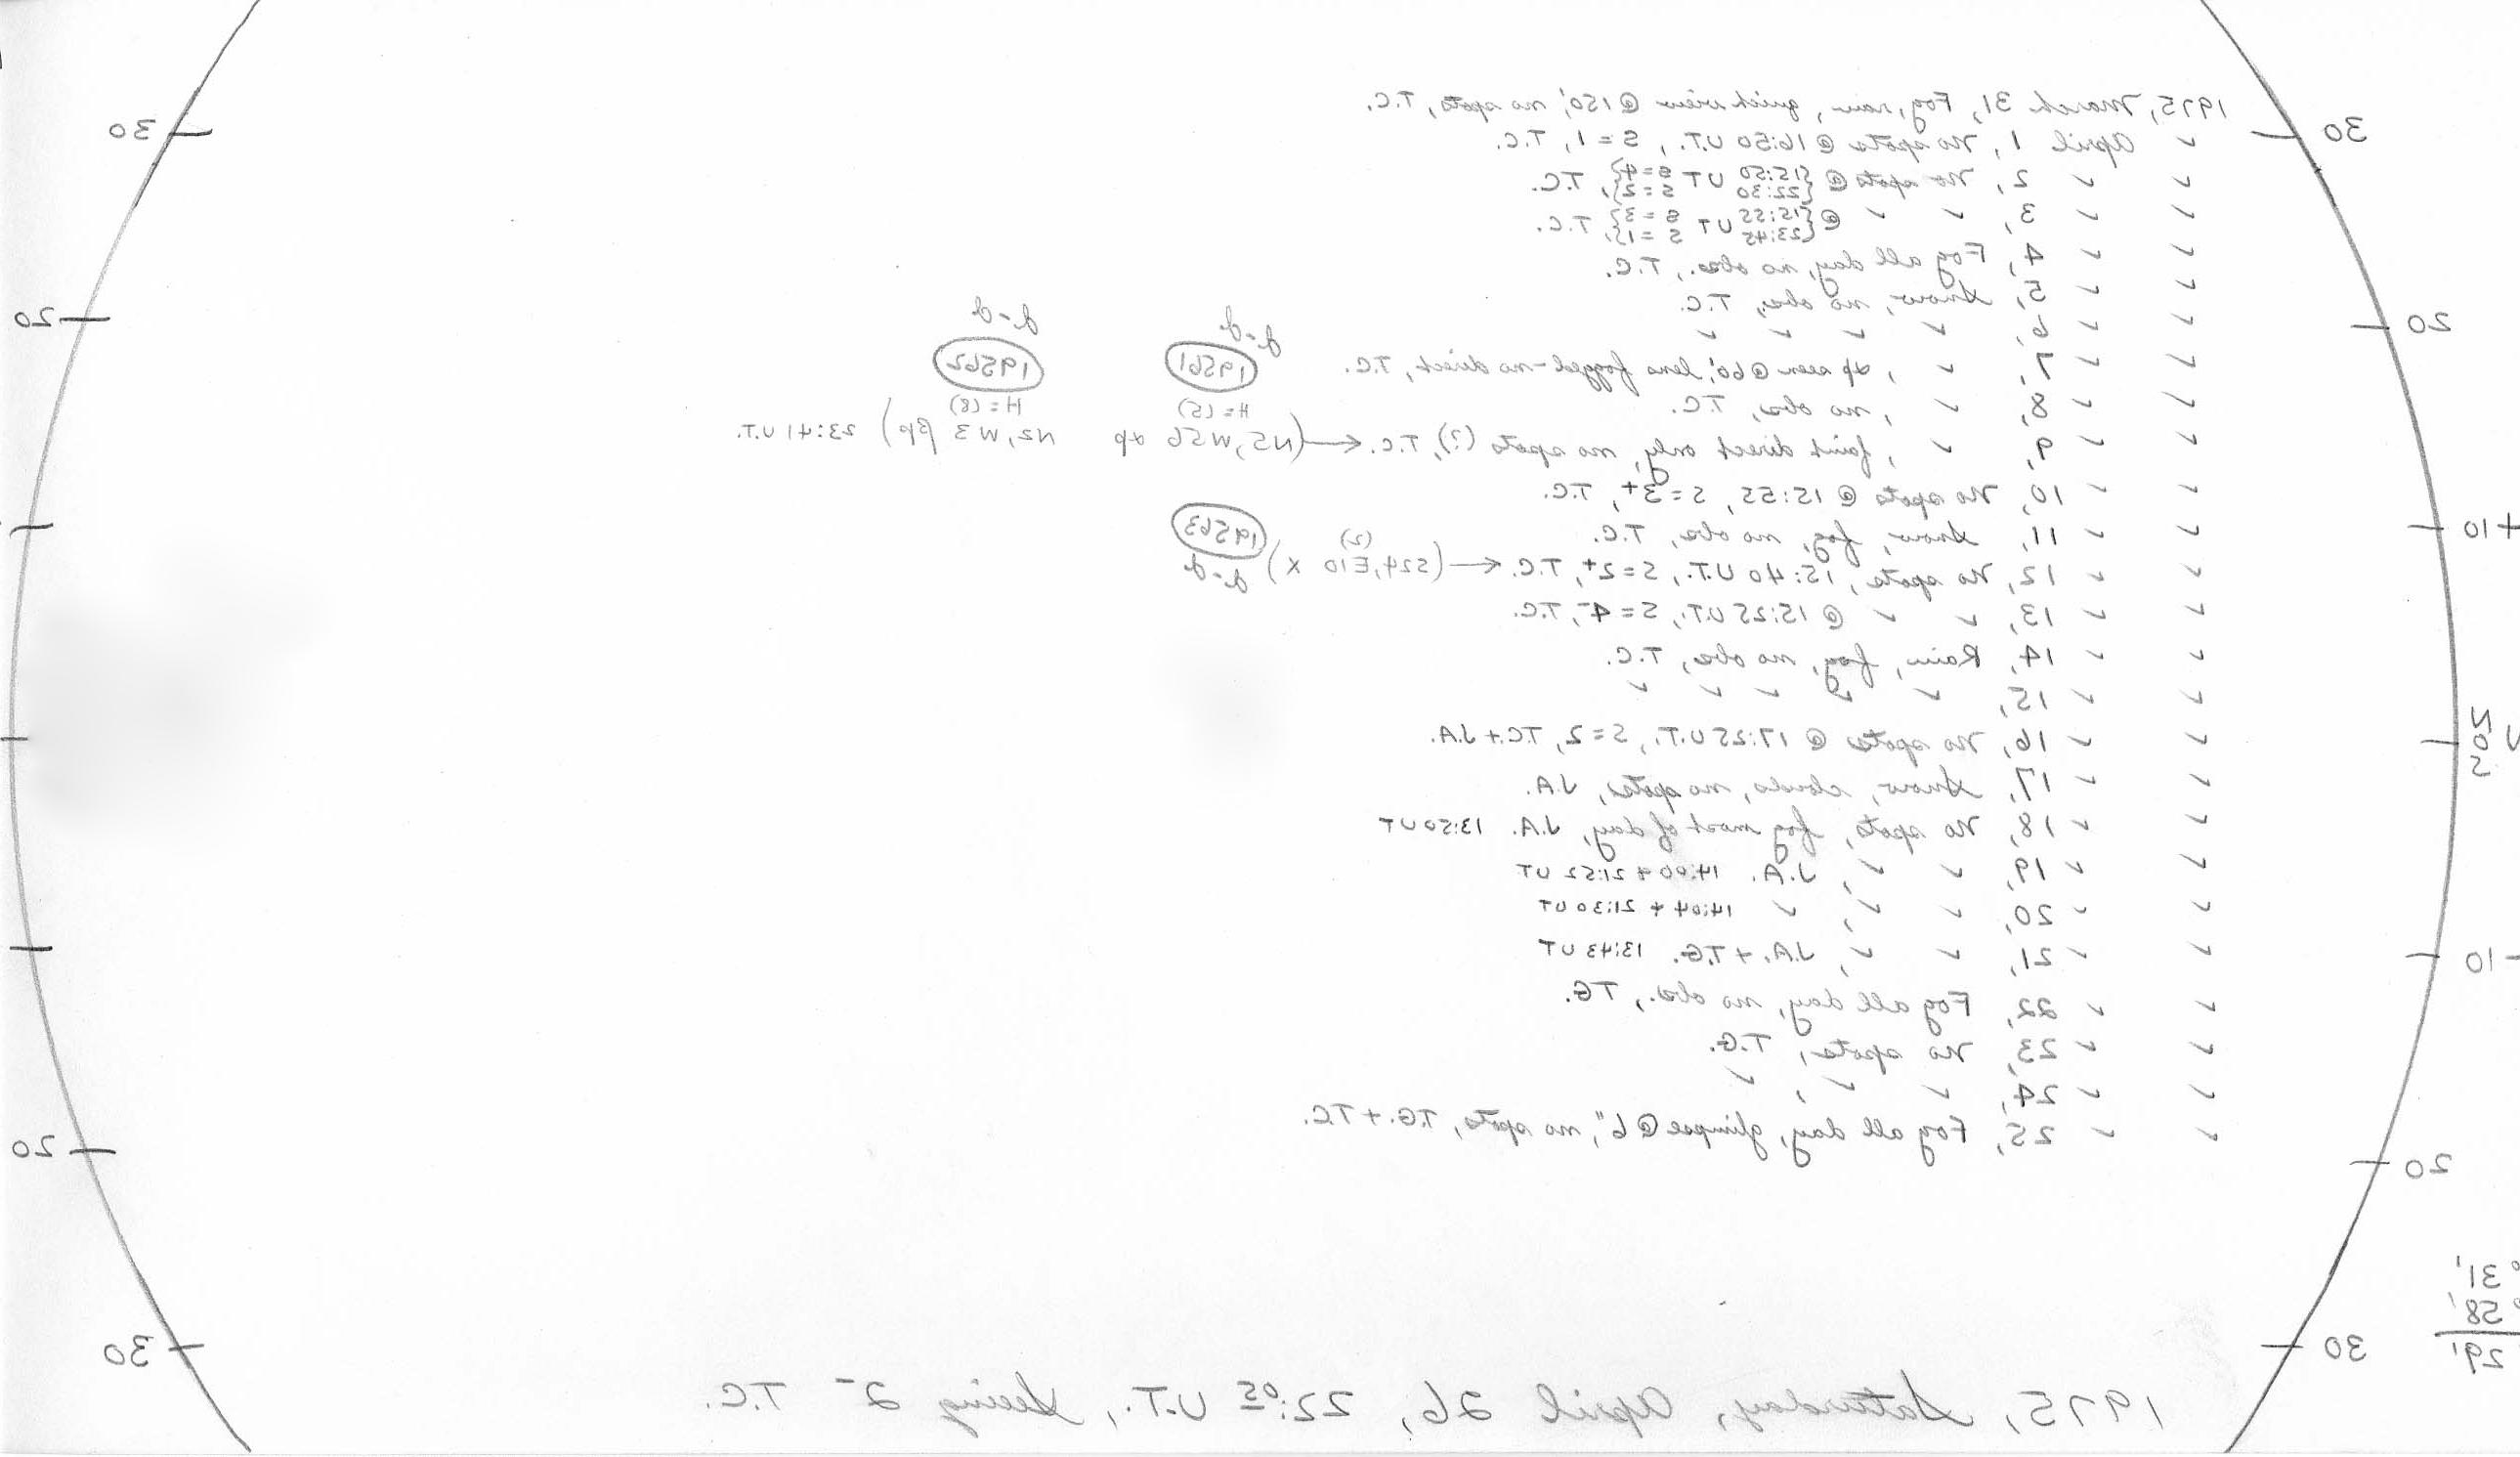 1975, March 31, Fog, raw, quick view @ 150', no spots, T.C.
" April 1, No spots @ 16:50 U.T., S = 1, T.C.
" " 2, No spots @ {15:50 UT S=4} {22:30 S=2}, T.C.
" " 3, " " @ {15:55 UT S=3} {23:45 S=1}, T.C.
" " 4, Fog all day, no obs., T.C.
" " 5, Snow, no obs, T.C.
" " 6, " " " "
" " 7, " , sp seen @ 60', lens fogged - no direct, T.C.
" " 8, " , no obs, T.C.
" " 9, " , faint direct only, no spots (?), T.C. ← (N5, W56 αp N2, W3 βp) 23:41 U.T.
19561 d-d H = (5)
19562 d-d H = (8)
" " 10, No spots @ 15:55, S = 3+, T.C.
" " 11, Snow, fog, no obs, T.C.
" " 12, No spots, 15:40 U.T., S = 2+, T.C. ← (S24, E10 X) (2)
19563 d-d
" " 13, " " @ 15:25 U.T., S = 4-, T.C.
" " 14, Rain, fog, no obs, T.C.
" " 15, " " " " "
" " 16, No spots @ 17:25 U.T., S = 2, T.C. + J.A.
" " 17, Snow, clouds, no spots, J.A.
" " 18, No spots, fog most of day, J.A. 13:50 UT
" " 19, " ", J.A. 14:00 + 21:52 UT
" " 20, " ", " 14:04 + 21:30 UT
" " 21, " ", J.A. + T.G. 13:43 UT
" " 22, Fog all day, no obs., T.G.
" " 23, No spots, T.G.
" " 24, " ", "
" " 25, Fog all day, glimpse @ 6", no spots, T.G. + T.C.
1975, Saturday, April 26, 22:05 U.T., Seeing 2- T.C.
30
20
+10
-10
20
30
31'
58'
29'
30
20
20
30